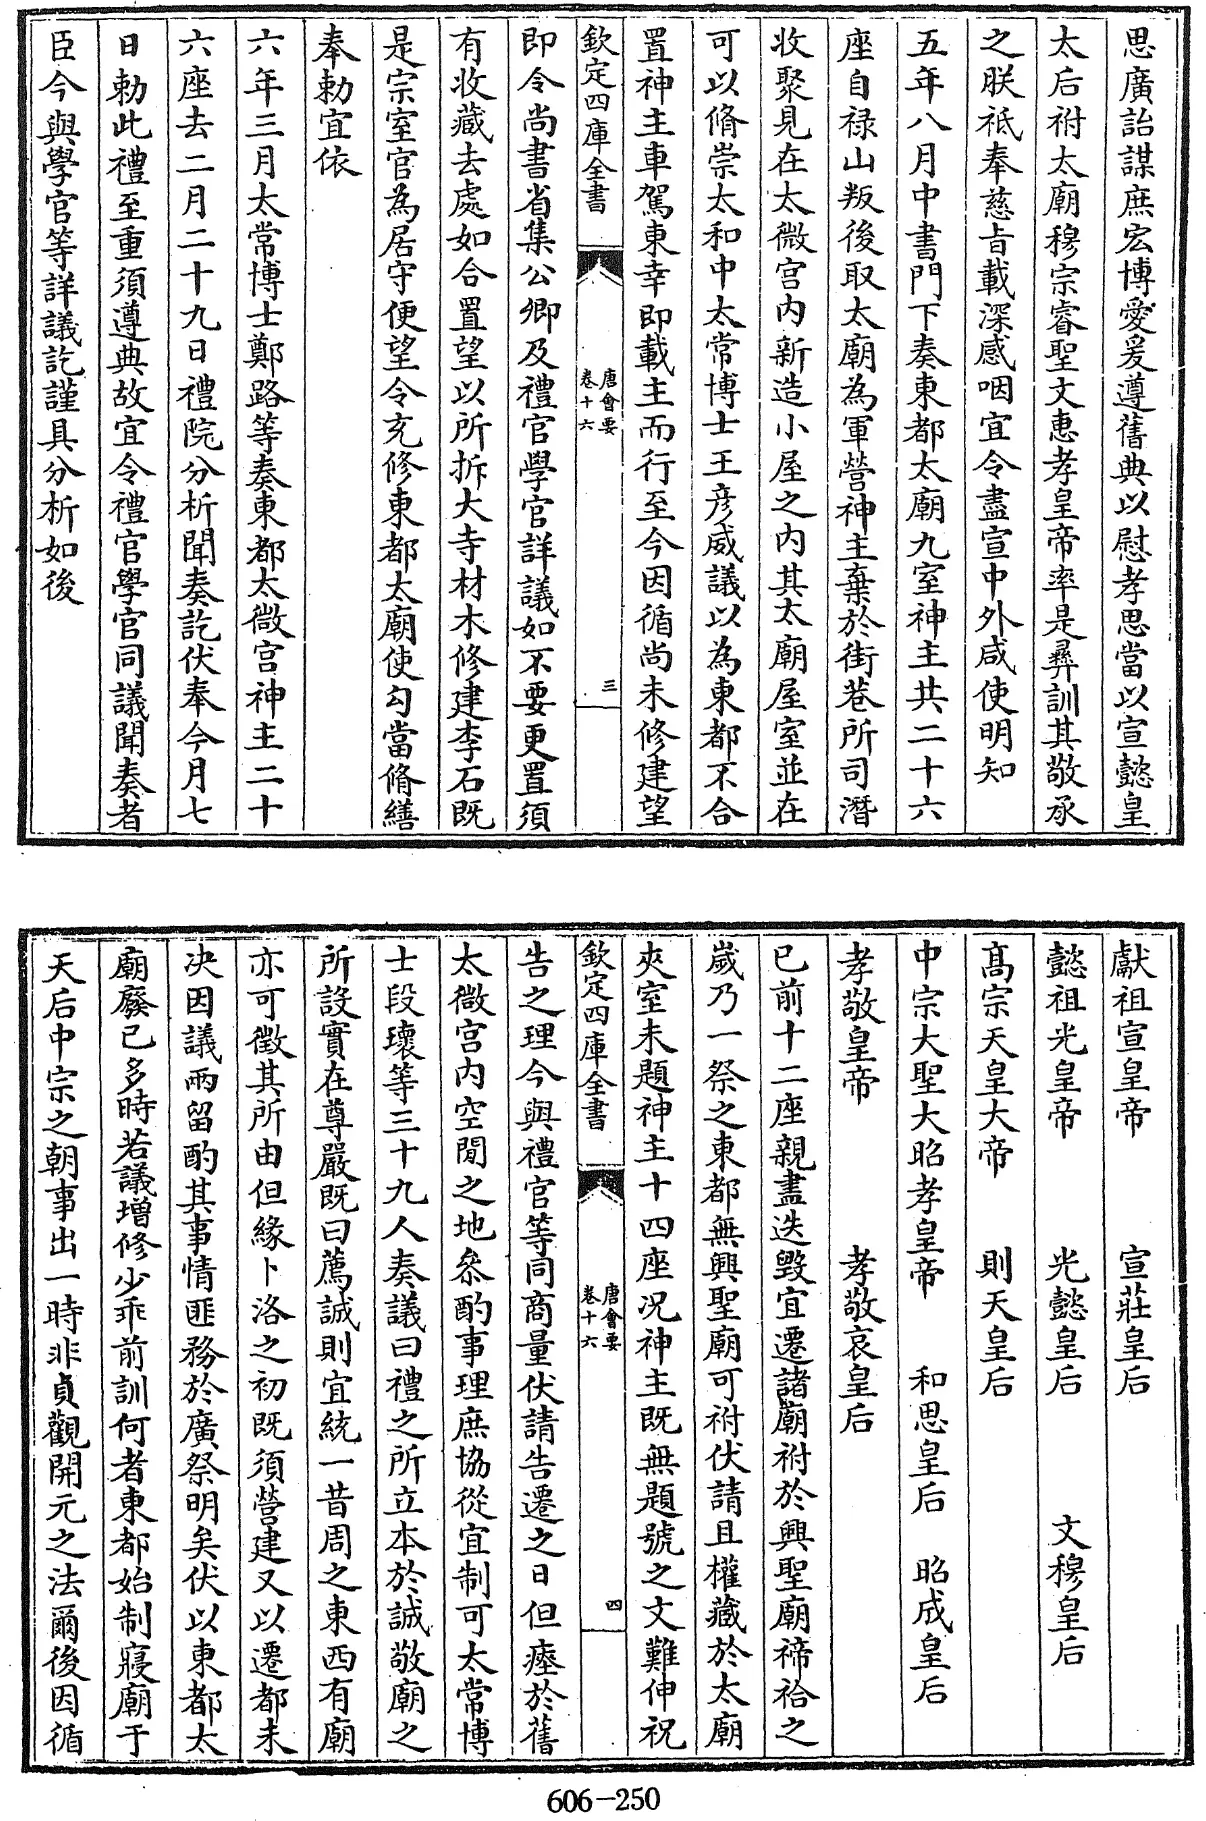 思廣詒謀庶宏博愛爰遵舊典以慰孝思當以宣懿皇
太后祔太廟穆宗睿聖文惠孝皇帝率是彝訓其敬承
之朕祗奉慈旨載深感咽宜令盡宣中外咸使明知
五年八月中書門下奏東都太廟九室神主共二十六
座自禄山叛後取太廟為軍營神主棄於街巷所司潛
收聚見在太微宫内新造小屋之内其太廟屋室並在
可以脩崇太和中太常博士王彦威議以為東都不合
置神主車駕東幸即載主而行至今因循尚未修建望
欽定四庫全書
唐會要
卷十六
三
即令尚書省集公卿及禮官學官詳議如不要更置須
有收藏去處如合置望以所拆大寺材木修建李石既
是宗室官為居守便望令充修東都太廟使勾當脩繕
奉勅宜依
六年三月太常博士鄭路等奏東都太微宫神主二十
六座去二月二十九日禮院分析聞奏訖伏奉今月七
日勅此禮至重須遵典故宜令禮官學官同議聞奏者
臣今與學官等詳議訖謹具分析如後
獻祖宣皇帝 宣莊皇后
懿祖光皇帝 光懿皇后 文穆皇后
髙宗天皇大帝 則天皇后
中宗大聖大昭孝皇帝 和思皇后 昭成皇后
孝敬皇帝 孝敬哀皇后
已前十二座親盡迭毁宜遷諸廟祔於興聖廟禘祫之
嵗乃一祭之東都無興聖廟可祔伏請且權藏於太廟
夾室未題神主十四座况神主既無題號之文難伸祝
欽定四庫全書
唐會要
卷十六
四
告之理今與禮官等同商量伏請告遷之日但瘞於舊
太微宫内空閒之地叅酌事理庶協從宜制可太常博
士段瓌等三十九人奏議曰禮之所立本於誠敬廟之
所設實在尊嚴既曰薦誠則宜統一昔周之東西有廟
亦可徵其所由但緣卜洛之初既須營建又以遷都未
决因議兩留酌其事情匪務於廣祭明矣伏以東都太
廟廢已多時若議增修少乖前訓何者東都始制寢廟于
天后中宗之朝事出一時非貞觀開元之法爾後因循
606-250